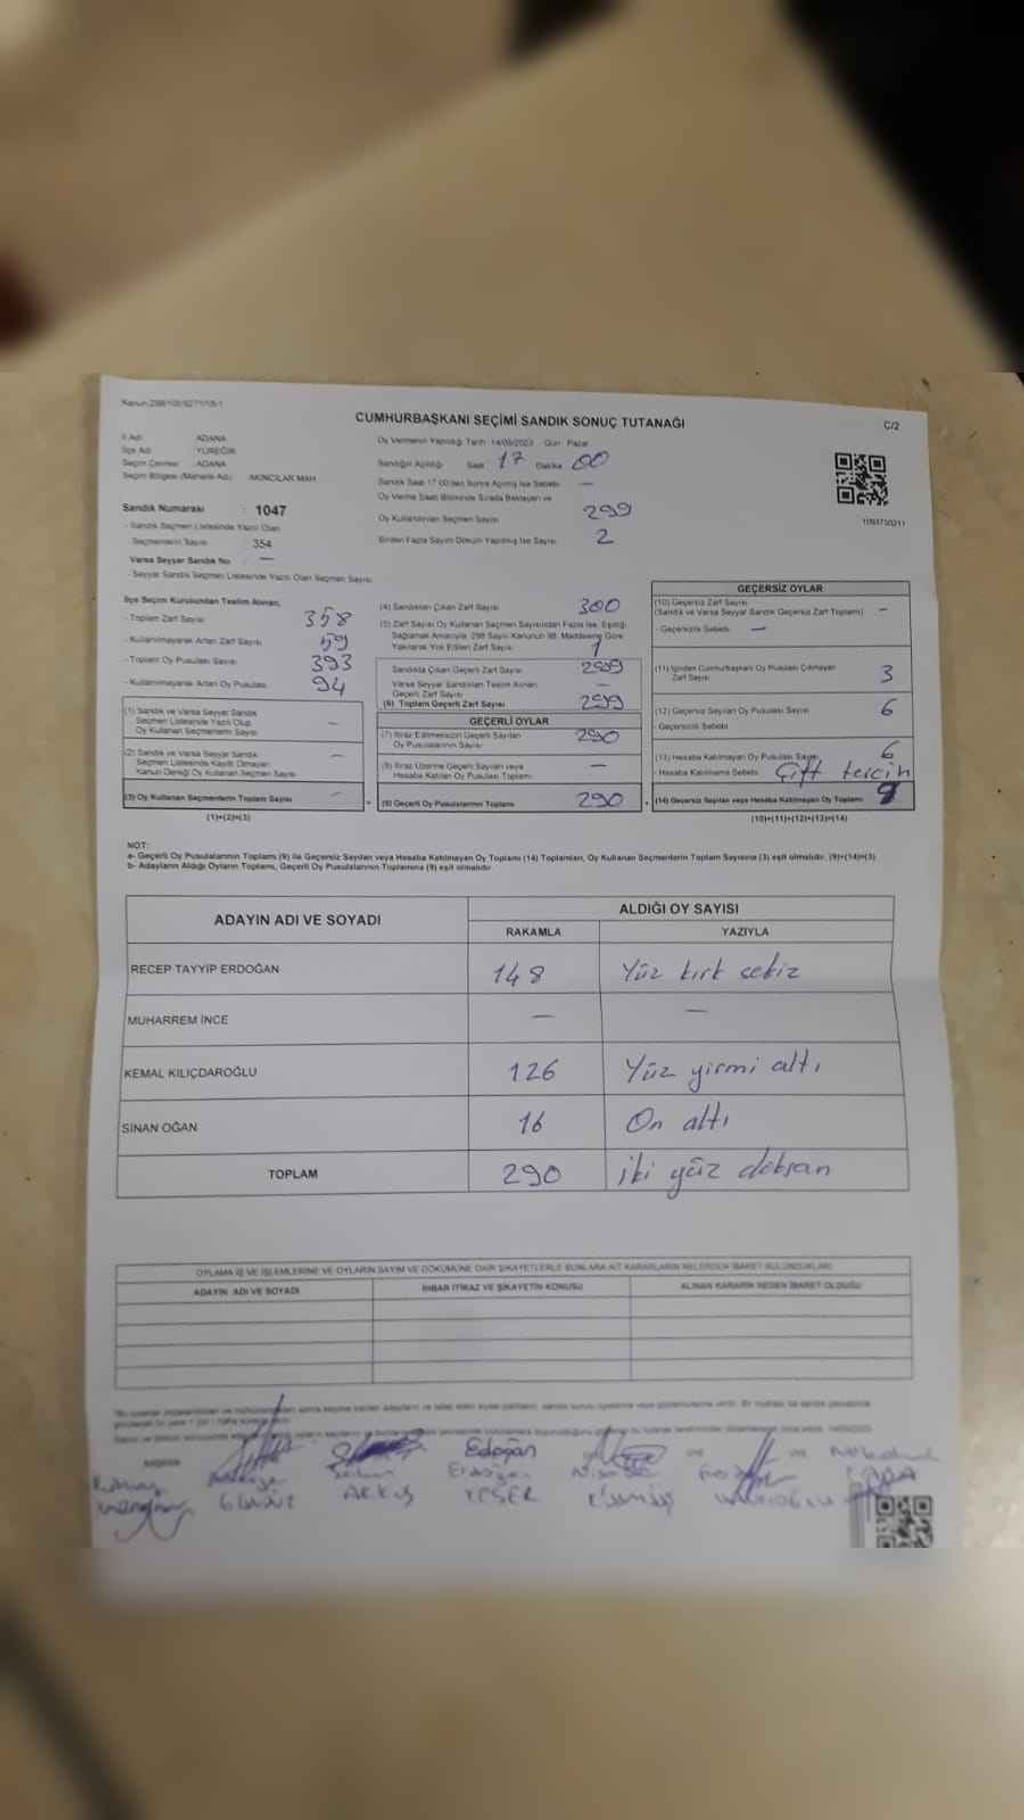 CUMHURBAŞKANI SEÇİMİ SANDIK SONUÇ TUTANAĞI
C/2
İl Adı ADANA
İlçe Adı YÜREĞİR
Seçim Çevresi ADANA
Seçim Bölgesi (Mahalle Adı) AKINCILAR MAH
Oy Vermenin Yapıldığı Tarih 14/05/2023 Gün: Pazar
Sandığın Açıldığı Saat 17 Dakika 00
Sandık Saat 17.00'den Sonra Açılmış İse Sebebi —
Oy Verme Saati Bitiminde Sırada Bekleyen ve
Oy Kullandırılan Seçmen Sayısı 299
Birden Fazla Sayım Döküm Yapılmış İse Sayısı 2
Sandık Numarası : 1047
- Sandık Seçmen Listesinde Yazılı Olan
Seçmenlerin Sayısı 354
Varsa Seyyar Sandık No —
- Seyyar Sandık Seçmen Listesinde Yazılı Olan Seçmen Sayısı
İlçe Seçim Kurulundan Teslim Alınan,
- Toplam Zarf Sayısı 358
- Kullanılmayarak Artan Zarf Sayısı 59
- Toplam Oy Pusulası Sayısı 393
- Kullanılmayarak Artan Oy Pusulası 94
(1) Sandık ve Varsa Seyyar Sandık
Seçmen Listesinde Yazılı Olup
Oy Kullanan Seçmenlerin Sayısı —
(2) Sandık ve Varsa Seyyar Sandık
Seçmen Listesinde Kayıtlı Olmayan
Kanun Gereği Oy Kullanan Seçmen Sayısı —
(3) Oy Kullanan Seçmenlerin Toplam Sayısı —
(1)+(2)=(3)
(4) Sandıktan Çıkan Zarf Sayısı 300
(5) Zarf Sayısı Oy Kullanan Seçmen Sayısından Fazla İse, Eşitliği
Sağlamak Amacıyla 298 Sayılı Kanunun 98. Maddesine Göre
Yakılarak Yok Edilen Zarf Sayısı 1
Sandıkta Çıkan Geçerli Zarf Sayısı 299
Varsa Seyyar Sandıktan Teslim Alınan
Geçerli Zarf Sayısı —
(6) Toplam Geçerli Zarf Sayısı 299
GEÇERLİ OYLAR
(7) İtiraz Edilmeksizin Geçerli Sayılan
Oy Pusulalarının Sayısı 290
(8) İtiraz Üzerine Geçerli Sayılan veya
Hesaba Katılan Oy Pusulası Toplamı —
(9) Geçerli Oy Pusulalarının Toplamı 290
GEÇERSİZ OYLAR
(10) Geçersiz Zarf Sayısı
(Sandık ve Varsa Seyyar Sandık Geçersiz Zarf Toplamı) —
- Geçersizlik Sebebi —
(11) İçinden Cumhurbaşkanı Oy Pusulası Çıkmayan
Zarf Sayısı 3
(12) Geçersiz Sayılan Oy Pusulası Sayısı 6
- Geçersizlik Sebebi
(13) Hesaba Katılmayan Oy Pusulası Sayısı 6
- Hesaba Katılmama Sebebi Çift tercih
(14) Geçersiz Sayılan veya Hesaba Katılmayan Oy Toplamı 9
(10)+(11)+(12)+(13)=(14)
NOT:
a- Geçerli Oy Pusulalarının Toplamı (9) ile Geçersiz Sayılan veya Hesaba Katılmayan Oy Toplamı (14) Toplamları, Oy Kullanan Seçmenlerin Toplam Sayısına (3) eşit olmalıdır. (9)+(14)=(3)
b- Adayların Aldığı Oyların Toplamı, Geçerli Oy Pusulalarının Toplamına (9) eşit olmalıdır.
ADAYIN ADI VE SOYADI
ALDIĞI OY SAYISI
RAKAMLA YAZIYLA
RECEP TAYYİP ERDOĞAN 148 Yüz kırk sekiz
MUHARREM İNCE — —
KEMAL KILIÇDAROĞLU 126 Yüz yirmi altı
SİNAN OĞAN 16 On altı
TOPLAM 290 iki yüz doksan
OYLAMA İŞ VE İŞLEMLERİNE VE OYLARIN SAYIM VE DÖKÜMÜNE DAİR ŞİKAYETLERLE BUNLARA AİT KARARLARIN NELERDEN İBARET BULUNDUKLARI
ADAYIN ADI VE SOYADI İHBAR İTİRAZ VE ŞİKAYETİN KONUSU ALINAN KARARIN NEDEN İBARET OLDUĞU
Edoğan
Erdoğan
YEŞER